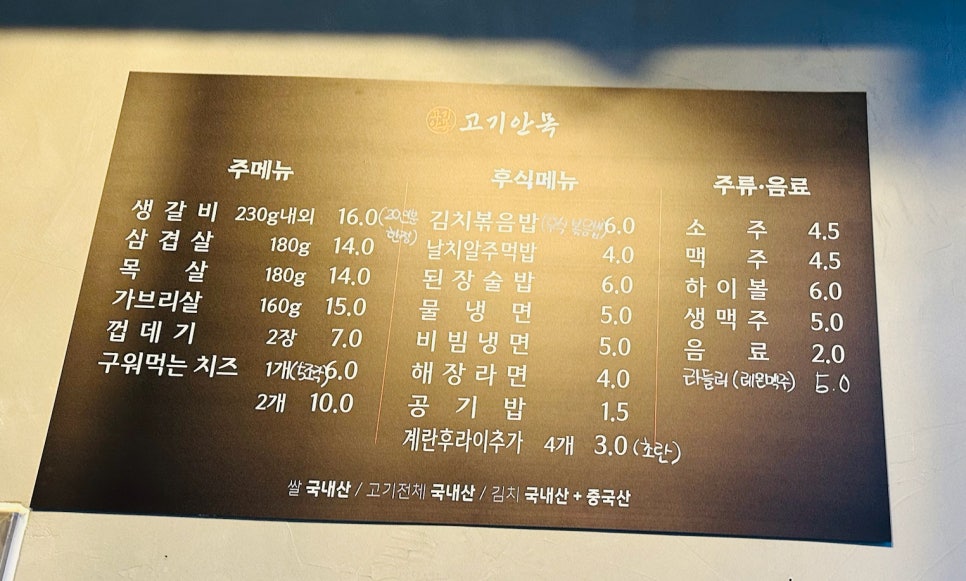 고기안목
주메뉴
생갈비 230g내외 16.0 (20인분
한정)
삼겹살 180g 14.0
목살 180g 14.0
가브리살 160g 15.0
껍데기 2장 7.0
구워먹는 치즈 1개(5조각) 6.0
2개 10.0
후식메뉴
김치볶음밥 (후식 볶음밥) 6.0
날치알주먹밥 4.0
된장술밥 6.0
물냉면 5.0
비빔냉면 5.0
해장라면 4.0
공기밥 1.5
계란후라이추가 4개 3.0 (초란)
주류·음료
소주 4.5
맥주 4.5
하이볼 6.0
생맥주 5.0
음료 2.0
라들러 (레몬맥주) 5.0
쌀 국내산 / 고기전체 국내산 / 김치 국내산 + 중국산